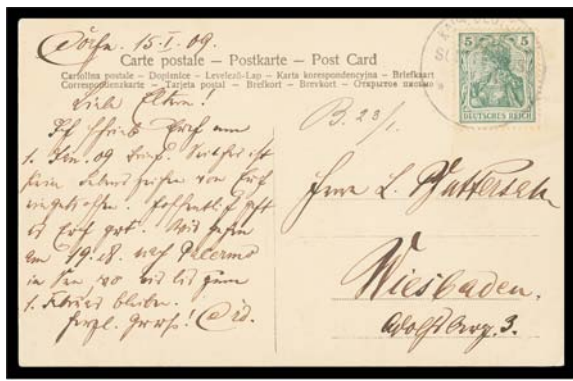 Corfu. 15.I.09.
Carte postale – Postkarte – Post Card
Cartolina postale – Dopisnice – Levelező-Lap – Karta korespondencyjna – Briefkaart
Correspondenzkarte – Tarjeta postal – Brefkort – Brevkort – Открытое письмо
Liebe Eltern!
Ich schrieb Euch am
1. Jan. 09 Brief. Seither ist
kein Lebenszeichen von Euch
eingetroffen. Hoffentlich geht
es Euch gut. Wir gehen
am 19. nach Palermo
in See, wo wir bis zum
1. Februar bleiben.
Herzl. Gruss!
B. 23/1.
5 5
DEUTSCHES REICH
Herrn L.
Wiesbaden.
Adolfsberg. 3.